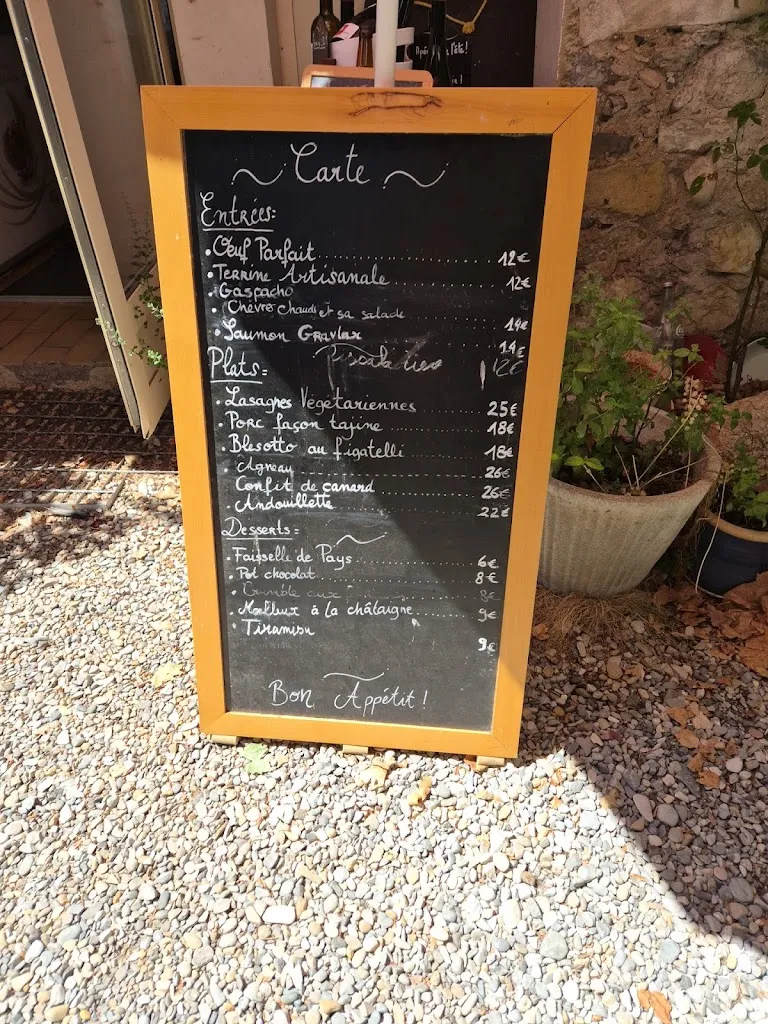 l'été!
~ Carte ~
Entrées:
• Œuf Parfait ........ 12€
• Terrine Artisanale ........ 12€
• Gaspacho
• Chèvre Chaud et sa salade ........ 14€
• Saumon Gravlax ........ 14€
12€
Plats:
• Lasagnes Végétariennes ........ 25€
• Porc façon tajine ........ 18€
• Blesotto au figatelli ........ 18€
• Agneau ........ 26€
• Confit de canard ........ 26€
• Andouillette ........ 22€
Desserts:
• Faisselle de Pays ........ 6€
• Pot chocolat ........ 8€
• Crumble aux 8€
• Moelleux à la châtaigne ........ 9€
• Tiramisu
9€
Bon Appétit!